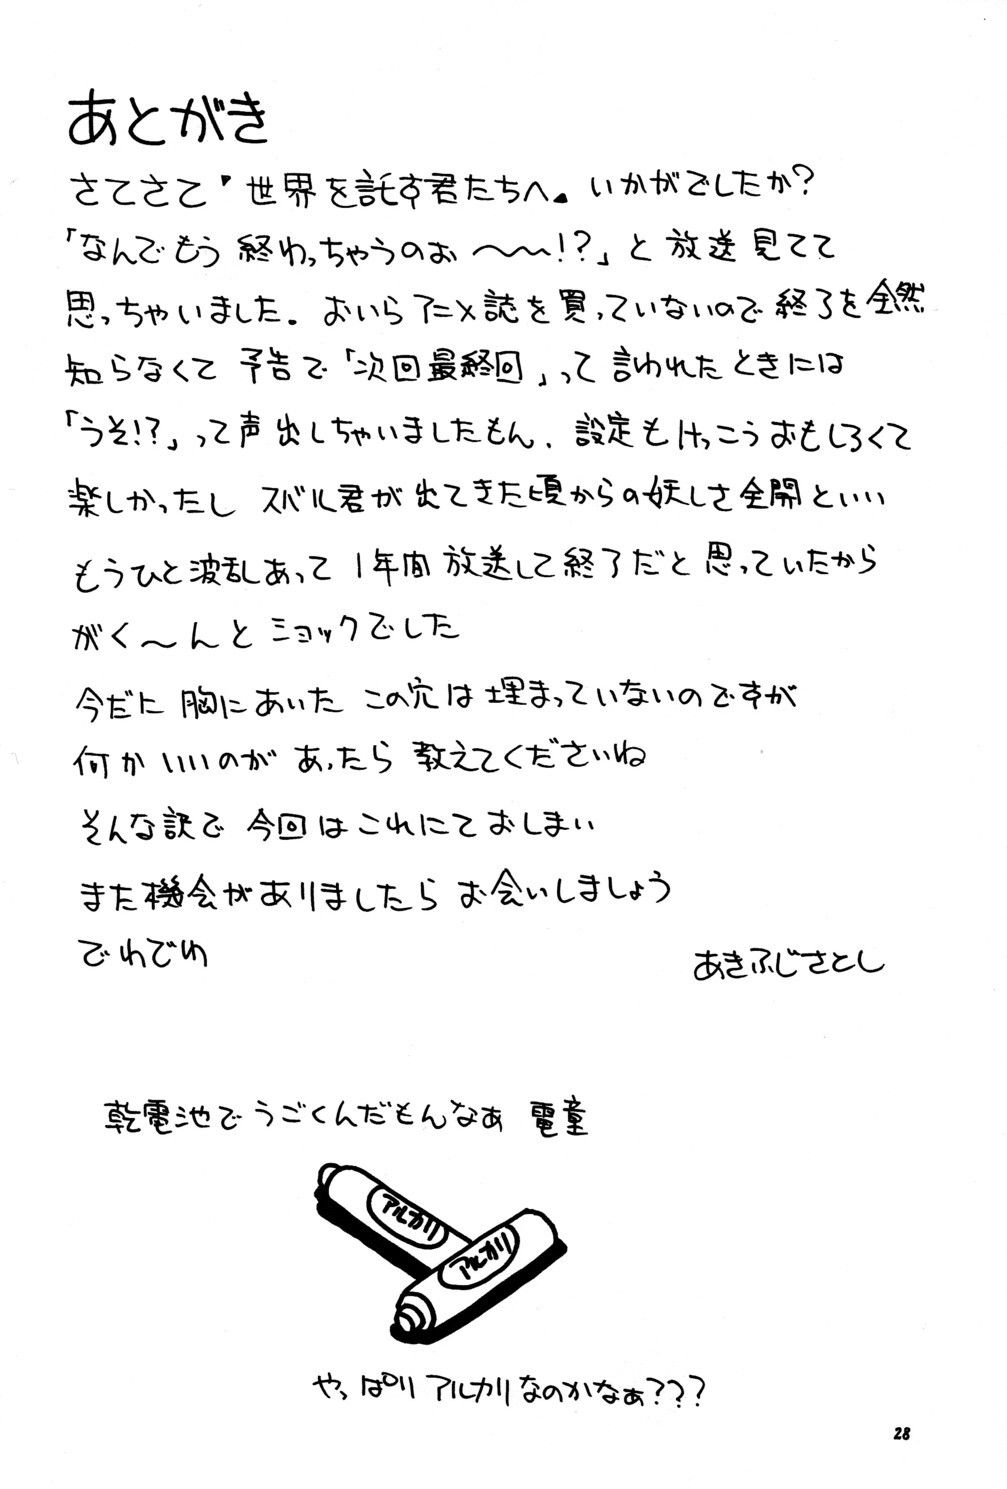 あとがき
さてさて〝世界を託す君たちへ〟いかがでしたか？
「なんでもう終わっちゃうのぉ〜〜!?」と放送見てて
思っちゃいました。おいらアニメ誌を買っていないので終了を全然
知らなくて予告で「次回最終回」って言われたときには
「うそ!?」って声出しちゃいましたもん．設定もけっこうおもしろくて
楽しかったしスバル君が出てきた頃からの妖しさ全開といい
もうひと波乱あって1年間放送して終了だと思っていたから
がく〜んとショックでした
今だに胸にあいたこの穴は埋まっていないのですが
何かいいのがあったら教えてくださいね
そんな訳で今回はこれにておしまい
また機会がありましたらお会いしましょう
でわでわ
あきふじさとし
乾電池でうごくんだもんなぁ 電童
アルカリ
アルカリ
やっぱりアルカリなのかなぁ？？？
28